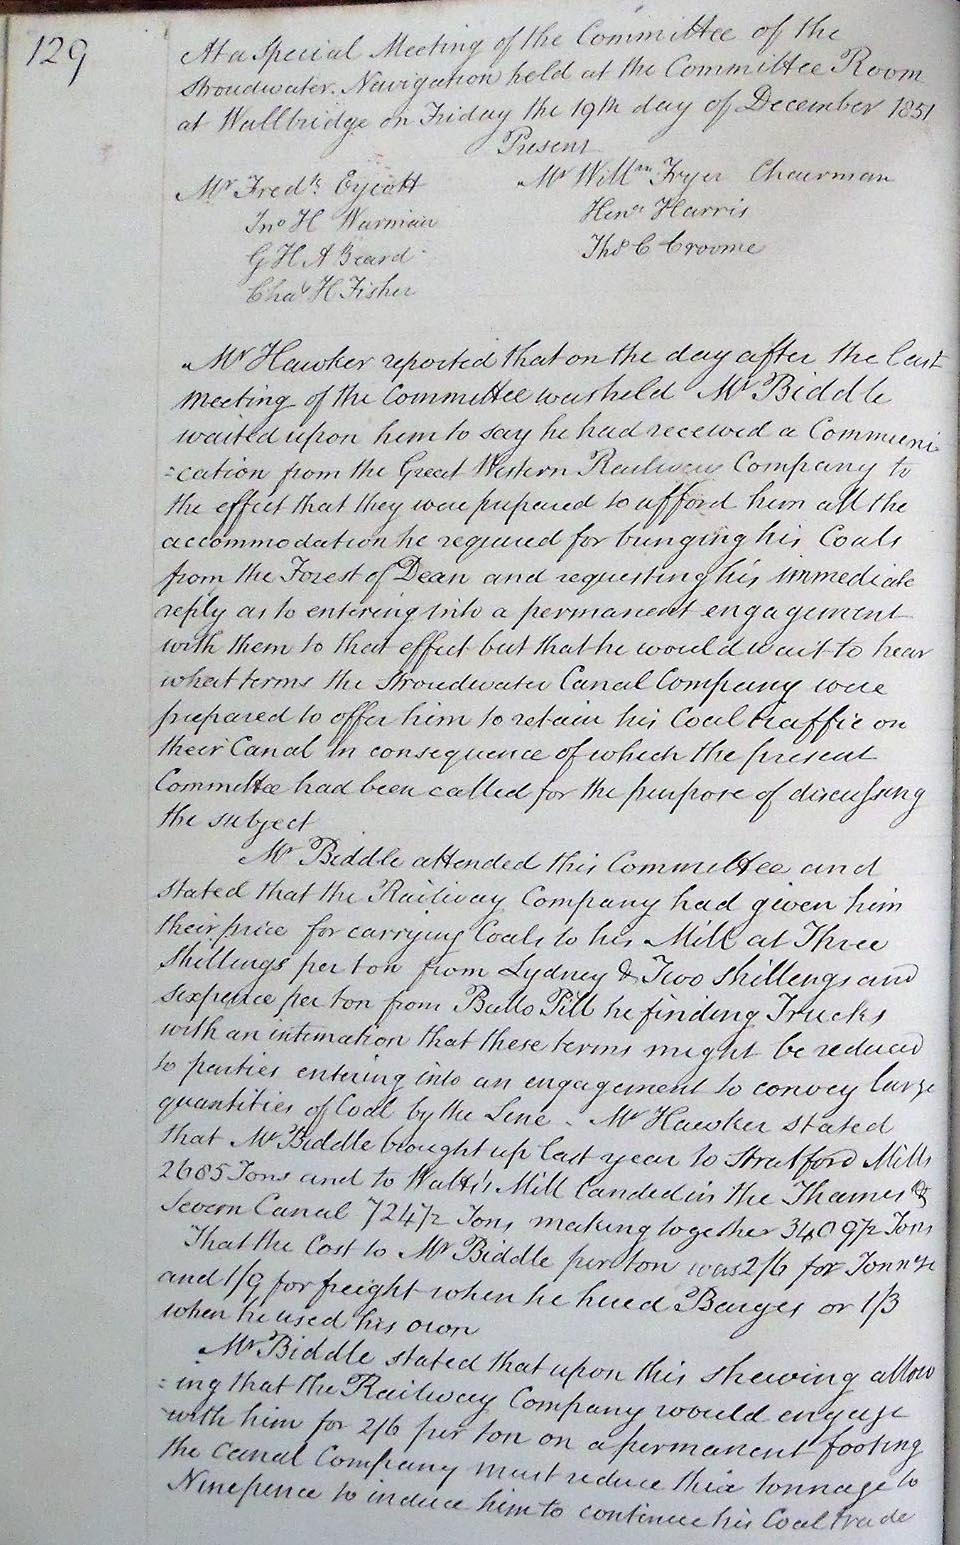 129
At a Special Meeting of the Committee of the
Stroudwater Navigation held at the Committee Room
at Wallbridge on Friday the 19th day of December 1851
Present
Mr Fredk Eycott Mr Willm Fryer Chairman
Jno H Warman Heny Harris
G H A Beard Thos C Croome
Chas H Fisher
Mr Hawker reported that on the day after the last
meeting of the Committee was held Mr Biddle
waited upon him to say he had received a Communi
=cation from the Great Western Railway Company to
the effect that they were prepared to afford him all the
accommodation he required for bringing his Coals
from the Forest of Dean and requesting his immediate
reply as to entering into a permanent engagement
with them to that effect but that he would wait to hear
what terms the Stroudwater Canal Company were
prepared to offer him to retain his Coal traffic on
their Canal in consequence of which the present
Committee had been called for the purpose of discussing
the subject
Mr Biddle attended this Committee and
stated that the Railway Company had given him
their price for carrying Coals to his Mill at Three
Shillings per ton from Lydney & Two shillings and
sixpence per ton from Bullo Pill he finding Trucks
with an intimation that these terms might be reduced
to parties entering into an engagement to convey large
quantities of Coal by the Line. Mr Hawker stated
that Mr Biddle brought up last year to Stratford Mills
2685 Tons and to Watts's Mill Landed in the Thames &
Severn Canal 724 1/2 Tons making together 3409 1/2 Tons
That the Cost to Mr Biddle per ton was 2/6 for Tonnage
and 1/9 for freight when he hired Barges or 1/3
when he used his own
Mr Biddle stated that upon this shewing allow
=ing that the Railway Company would engage
with him for 2/6 per ton on a permanent footing
the Canal Company must reduce their tonnage to
Ninepence to induce him to continue his Coal trade